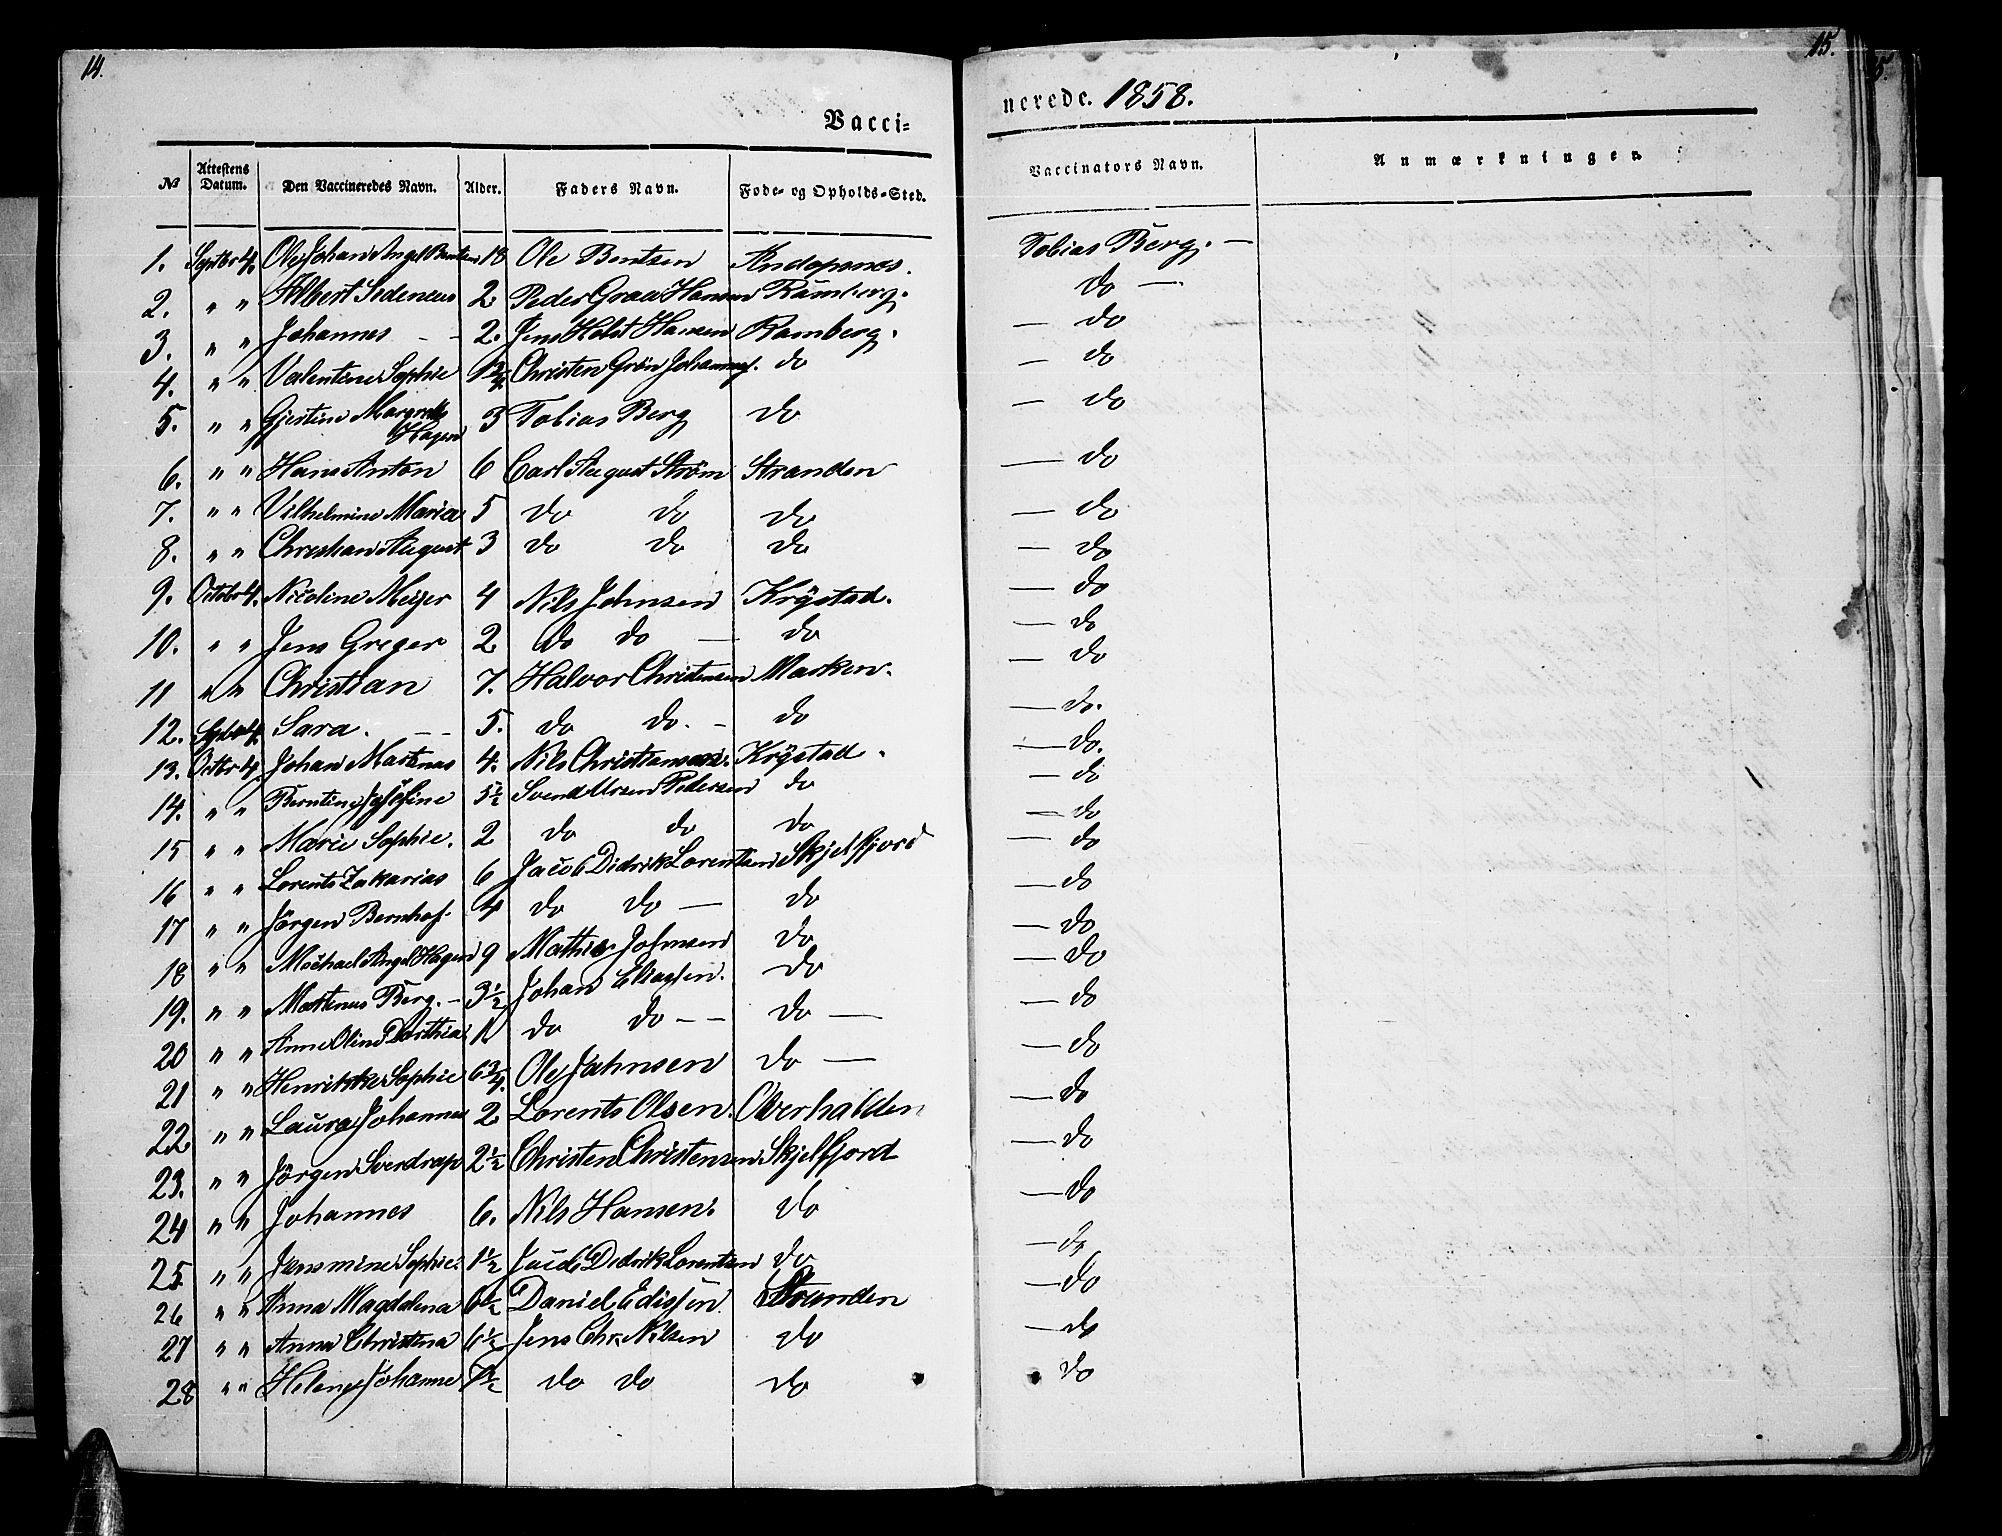 14.
15.
Vacci=
nerede. 1858.
№ Attestens Datum. Den Vaccineredes Navn. Alder. Faders Navn. Føde- og Opholds-Sted. Vaccinators Navn. Anmærkninger.
1. Septbr 4. Ole Johan Angel Bentsen 18 Ole Bentsen Andopnes. Tobias Berg. —
2. " " Albert Sedeneus 2 Peder Graa Hansen Ramberg. do —
3. " " Johannes - - 2. Jens Holst Hansen Ramberg. — do
4. " " Valentine Sophie 1 3/4 Christen Grön Johannes. do — do
5. " " Gjertine Margrethe Hagen 3 Tobias Berg do — do
6. " " Hans Anton 6 Carl August Strøm Stranden — do
7. " " Vilhelmine Maria 5 do do do — do
8. " " Christian August 3 do do do — do
9. Octobr 4. Nicoline Meijer 4 Nils Johnsen Krystad. — do
10. " " Jens Greger 2 do do — do — do
11 " " Christian 7. Halvor Christensen Marken. — do
12. Sptbr 4. Sara. - - 5. do do. - do — do.
13. Octbr 4. Johan Martinas 4. Nils Christiansen. Krystad. — do.
14. " " Berntine Josefine 5 1/2 Svend Ursen Pedersen do — do
15 " " Marie Sophie. 2 do do do — do
16 " " Lorents Zakarias 6 Jacob Didrik Lorentsen Skjelfjord — do
17 " " Jörgen Bernhof. 4 do do — do — do
18 " " Michael Angel Hagen 9 Mathis Johnsen do — do
19. " " Martinus Berg. - 3 1/2 Johan Eliassen. do — do
20 " " Anne Oline Dorthea 1 do do - - do — — do
21 " " Henrikke Sophie 6 3/4. Ole Johnsen do — — do
22 " " Laura Johanne 2. Lorents Olsen. Overhalden — do
23. " " Jörgen Sverdrup 2 1/2 Christen Christensen Skjelfjord — do
24 " " Johannes 6. Nils Hansen. do — do
25 " " Jensmine Sophie. 1 1/2 Jacob Didrik Lorentsen do — do
26 " " Anna Magdalena 6 1/2 Daniel Edissen Stranden — do
27 " " Anna Christina 6 1/2 Jens Chr. Nilsen do — do
28 " " Helene Johanne 7 1/2 do do do do